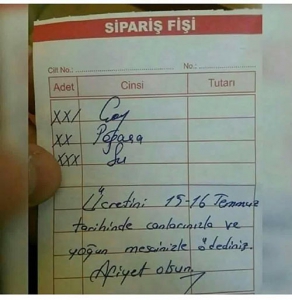 SİPARİŞ FİŞİ
Cilt No.: No.:
Adet Cinsi Tutarı
XX/ Çay
XX Poğaça
XXX Su
Ücretini 15-16 Temmuz
tarihinde canlarınızla ve
yoğun mesainizle ödediniz.
Afiyet olsun